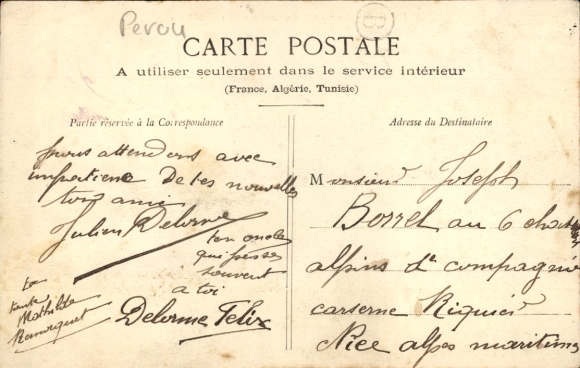 Perou
B
CARTE POSTALE
A utiliser seulement dans le service intérieur
(France, Algérie, Tunisie)
Partie réservée à la Correspondance
nous attendons avec
impatience De tes nouvelles
ton ami
Julien Delorme
ton oncle
qui penses
souvent
a toi
Delorme Felix
ta
tante
Mathilde
Adresse du Destinataire
Monsieur Joseph
Borrel au 6 chas
alpins 1e compagnie
caserne Riquier
Nice alpes maritimes